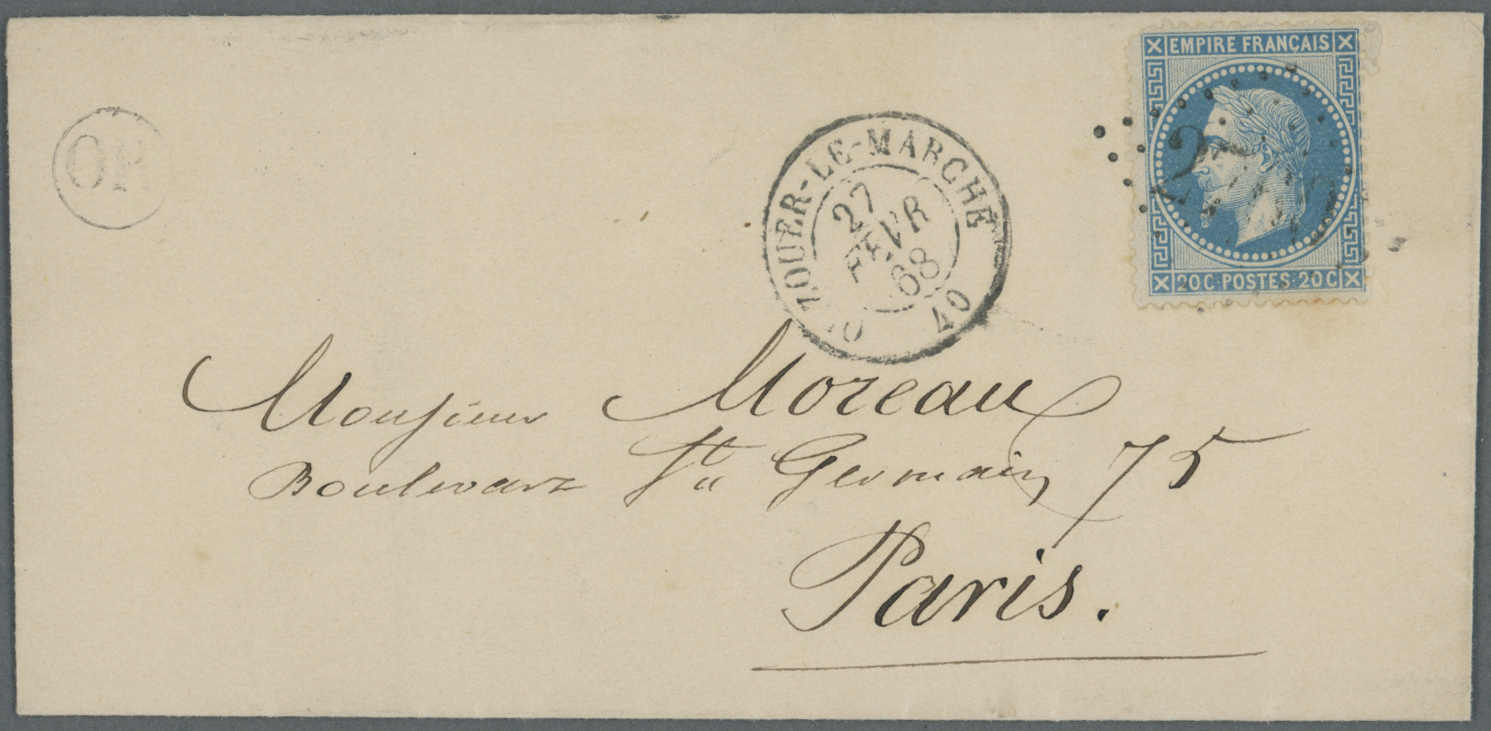 EMPIRE FRANÇAIS
20C POSTES 20C
OR
OUZOUER-LE-MARCHE
27
FEVR
68
40
Monsieur Moreau
Boulevard St Germain 75
Paris.